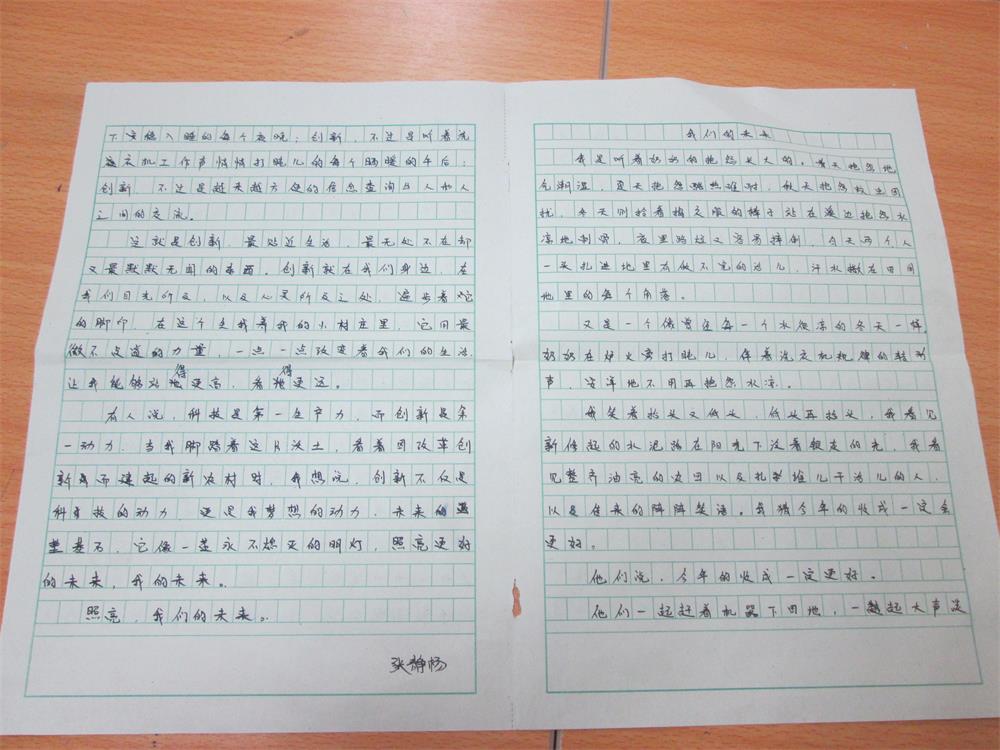 下安稳入睡的每个夜晚；创新，不过是听着洗
衣机工作声悄悄打盹儿的每个晒暖的午后；
创新，不过是越来越方便的信息查询与人和人
之间的交流。
这就是创新，最贴近生活，最无处不在却
又最默默无闻的东西。创新就在我们身边，在
我们目光所及，以及心灵所及之处，遍步着它
的脚印，在这个生我养我的小村庄里，它用最
微不足道的力量，一点一点改变着我们的生活，
让我能够站得更高，看得更远。
有人说，科技是第一生产力，而创新是第
一动力，当我脚踏着这片沃土，看着因改革创
新而建起的新农村时，我想说，创新不仅是
科技的动力，还是我梦想的动力，未来的
基石，它像一盏永不熄灭的明灯，照亮更好
的未来，我的未来。
照亮，我们的未来。
张静杨
我们的未来
我是听着奶奶的抱怨长大的，春天抱怨地
仓潮湿，夏天抱怨酷热难耐，秋天抱怨蚊虫困
扰，冬天则拎着换衣服的棒子站在溪边抱怨水
凉地刺骨，夜里路垃又容易摔倒，白天两个人
一头扎进地里有做不完的活儿，汗水撒在田间
地里的每个角落。
又是一个像曾经每一个水很凉的冬天一样，
奶奶在炉火旁打盹儿，伴着洗衣机规律的转动
声，安详地不用再抱怨水凉。
我笑着抬头又低头，低头再抬头，我看见
新修起的水泥路在阳光下泛着靓走的光，我看
见整齐油亮的农田以及扎堆儿干活儿的人，
以及传来的阵阵笑语。我猜今年的收成一定会
更好。
他们说，今年的收成一定更好。
他们一起赶着机器下田地，一起大声是